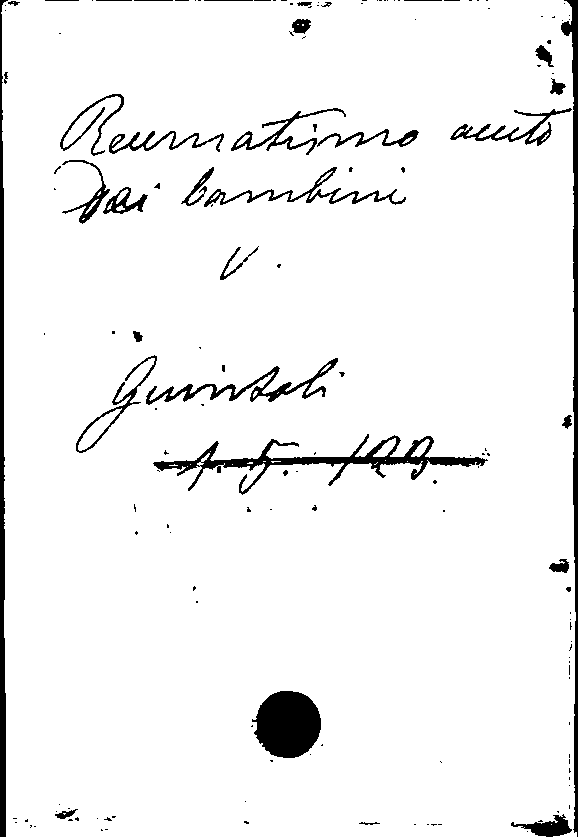 Reumatismo acuto
dei bambini
V.
Guintoli
1. 5. 123.